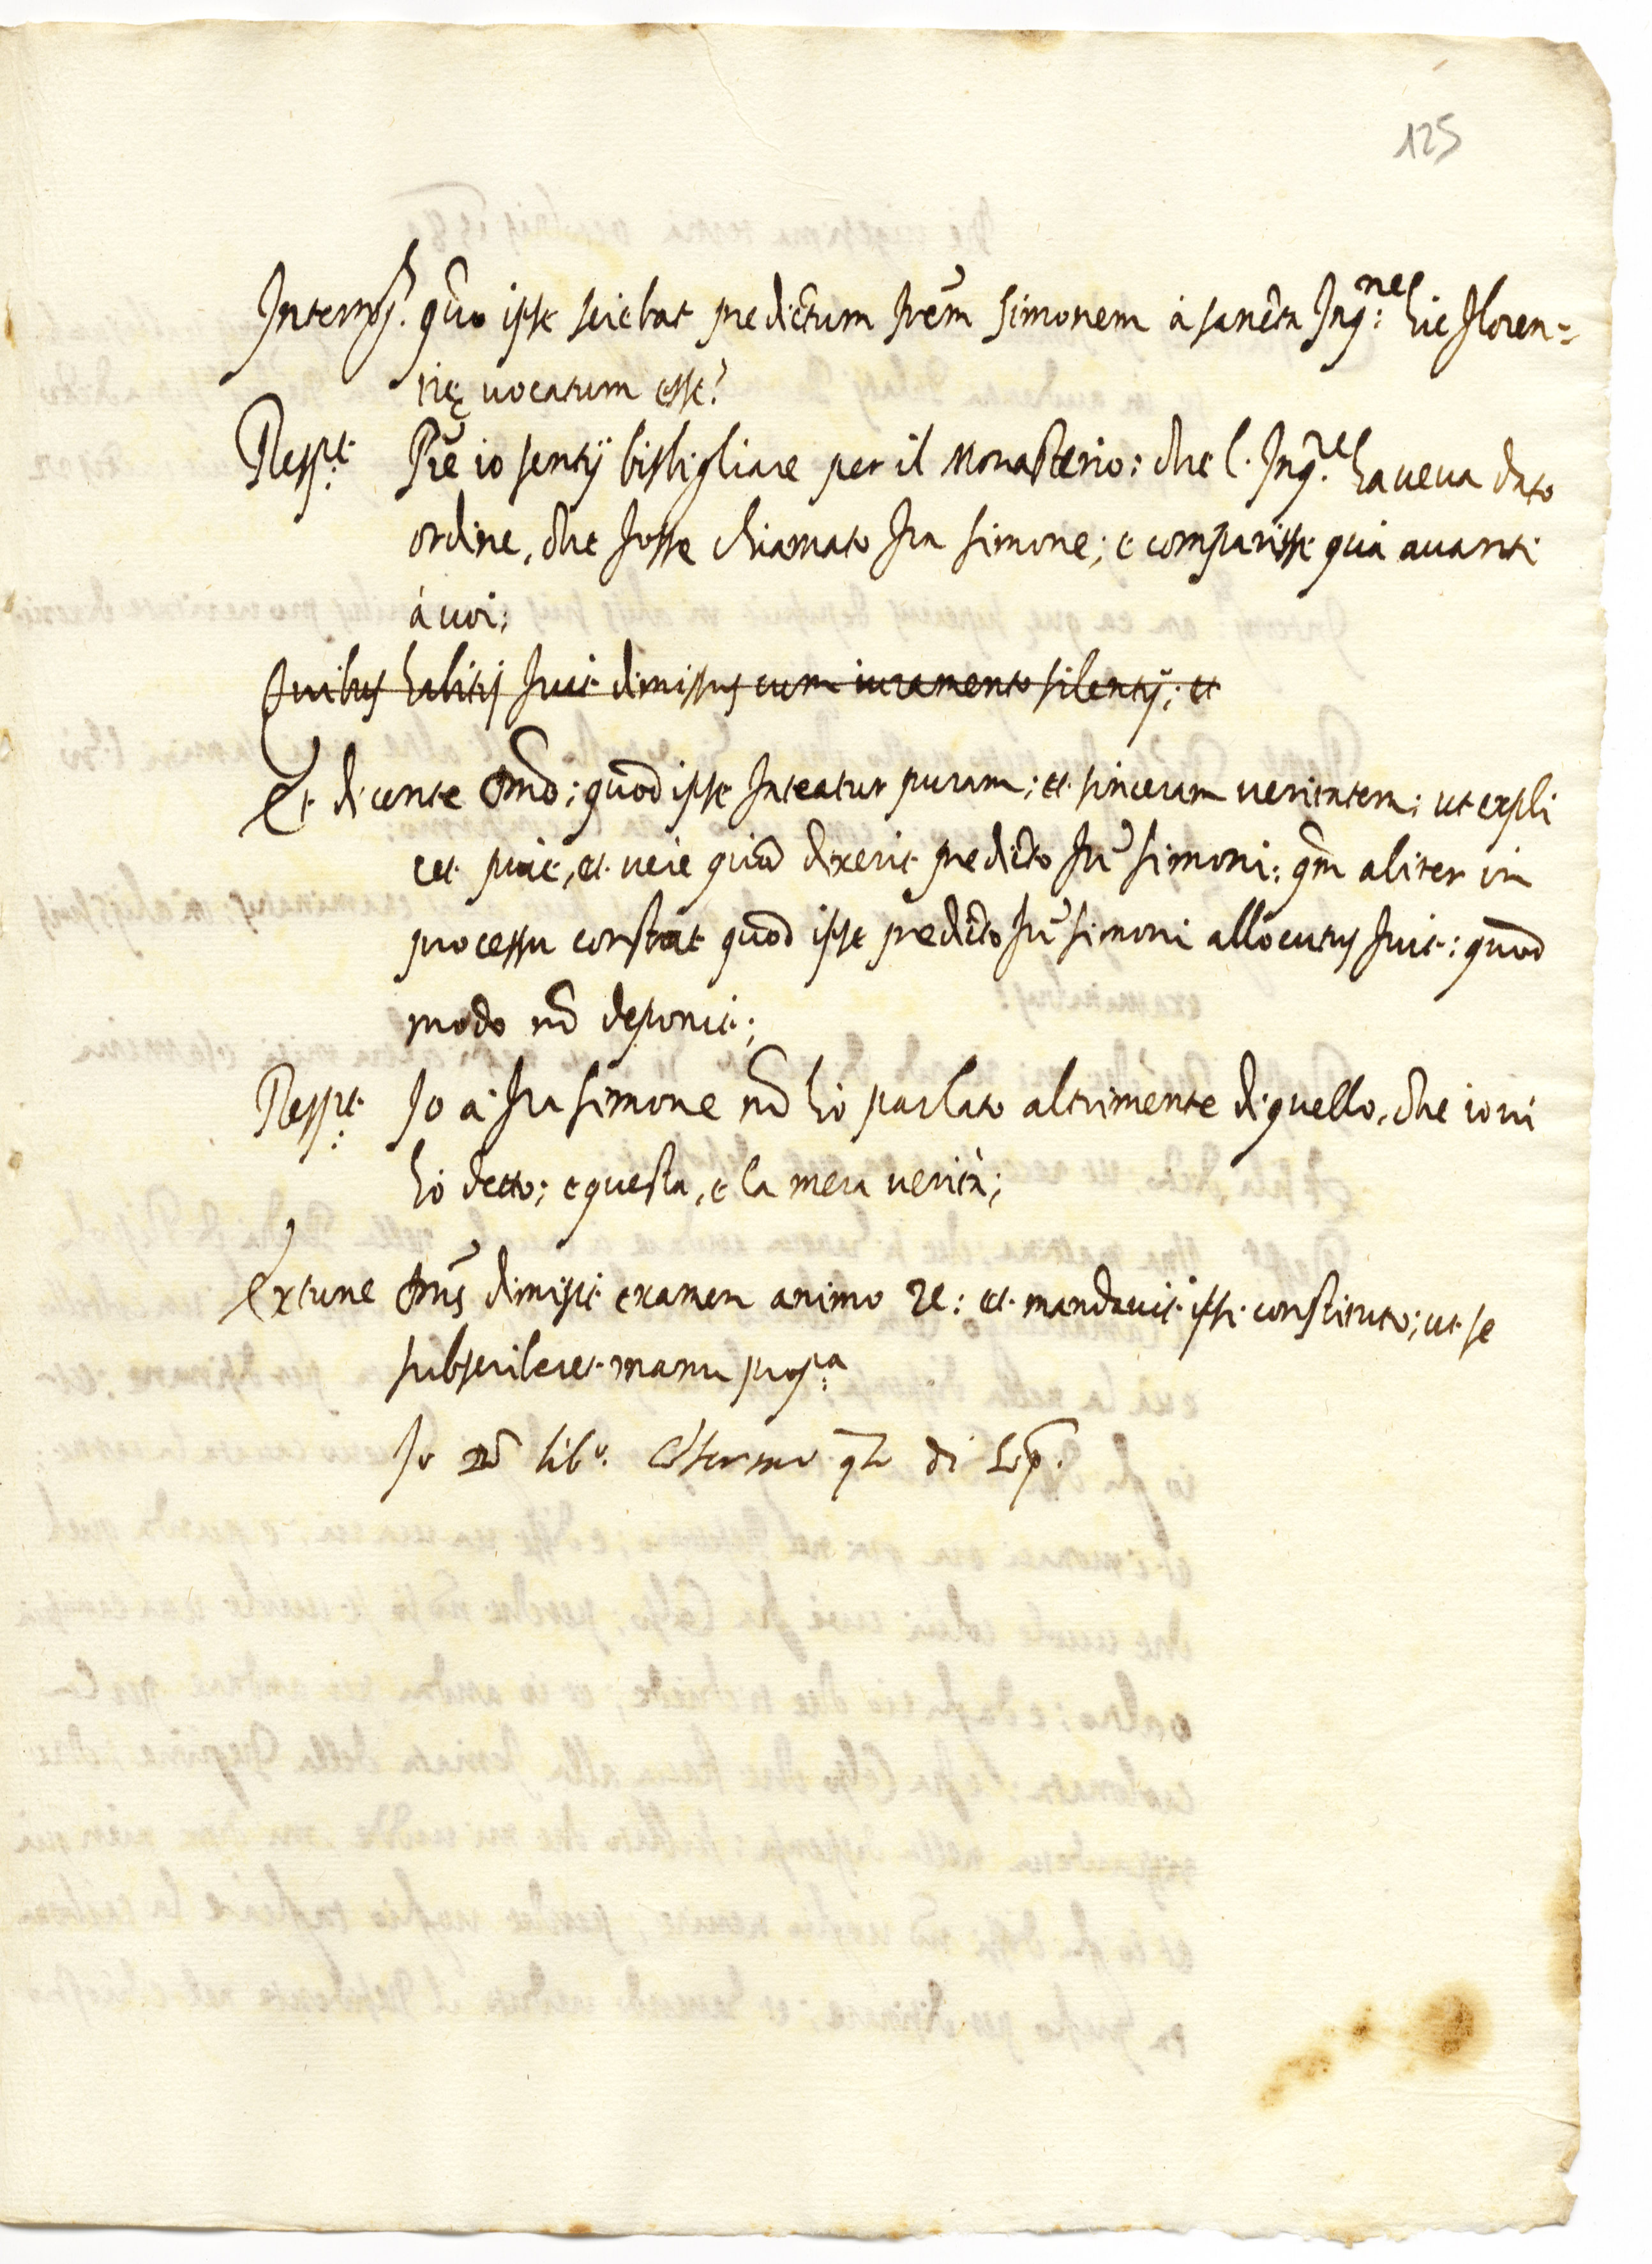 125
Interrog. quō ipse sciebat predictum frēm Simonem à sancta Inq:ne hic floren=
tię uocatum esse?
Resp:t Prē io sentij bisbigliare per il Monasterio: che l. Inq.re haueua dato
ordine, che fosse chiamato fra Simone; e comparisse quà auanti
à uoi;
Quibus habitis fuit dimissus cum iuramento silentij; et
Et dicente Dnō; quod ipse fateatur puram; et sinceram ueritatem; ut expli
cet pure, et uere quid dixerit predicto frī Simoni: qm̄ aliter in
processu constat quod ipse predicto frī Simoni allocutus fuit: quod
modo nō deponit;
Resp:t Io à fra Simone nō hò parlato altrimente di quello, che io ui
hò detto; e questa, e la mera uerità;
Extunc Dnūs dimisit examen animo re: et mandauit ipsi constituto; ut se
subscriberet manu prop:a
Io
di sop.